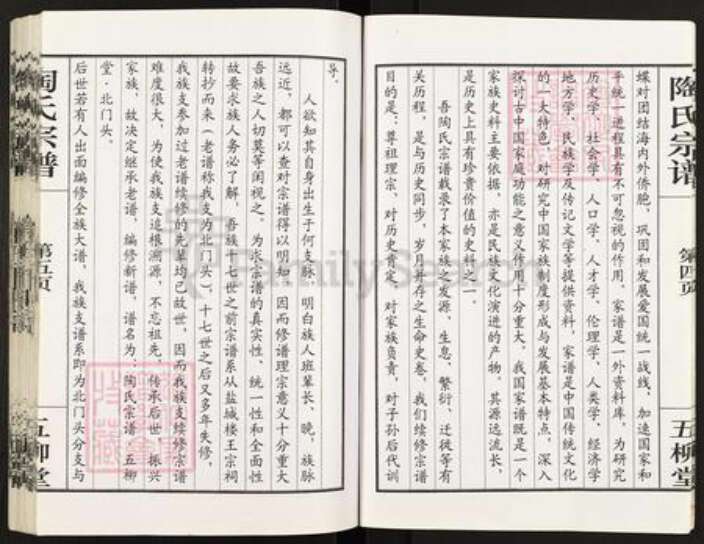 陶氏宗谱
第四页
五柳堂
蝶对团结海内外侨胞，巩固和发展爱国统一战线，加速国家和
平统一进程具有不可忽视的作用。家谱是一外资料库，为研究
历史学、社会学、人口学、人才学、伦理学、人类学、经济学
地方学、民族学及传记文学等提供资料，家谱是中国传统文化
的一大特色，对研究中国家族制度形成与发展基本特点，深入
探讨古中国家庭功能之意义作用十分重大。我国家谱既是一个
家族史料主要依据，亦是民族文化演进的产物。其源远流长，
是历史上具有珍贵价值的史料之一。
吾陶氏宗谱载录了本家族之发源、生息、繁衍、迁徙等有
关历程，是与历史同步，岁月并存之生命史卷。我们续修宗谱
目的是：尊祖理宗，对历史肯定，对家族负责，对子孙后代训
导。
人欲知其自身出生于何支脉，明白族人班辈长、晚，族脉
远近，都可以查对宗谱得以明知，因而修谱理宗意义十分重大
吾族之人切莫等闲视之。为求宗谱的真实性、统一性和全面性
故要求族人务必了解，吾族十七世之前宗谱系从盐城楼王宗祠
转抄而来（老谱称我支为北门头），十七世之后又多年失修，
我族支参加过老谱续修的先辈均已故世，因而我族支续修宗谱
难度很大，为使我族支追根溯源，不忘祖先，传承后世，振兴
家族，故决定继承老谱，编修新谱，谱名为：陶氏宗谱·五柳
堂·北门头。
后世若有人出面编修全族大谱，我族支谱系即为北门头分支与
陶氏宗谱
第五页
五柳堂
FamilySearch